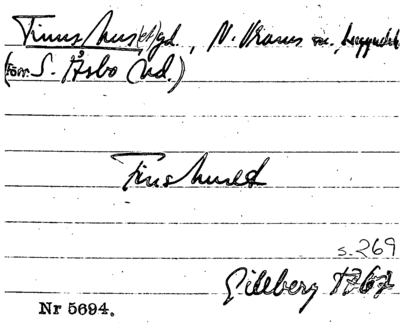 Finnshus(et) gd, N. Vrams sn, Luggude hd
(förr S. Åsbo hd.)
Finshuset
s. 269
Gillberg 1767
Nr 5694.